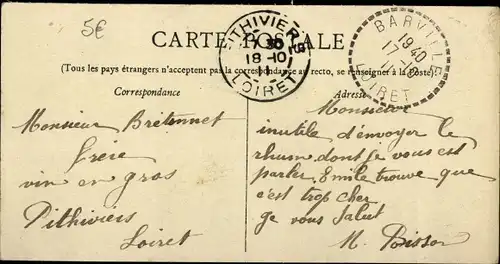 5€
CARTE POSTALE
(Tous les pays étrangers n'acceptent pas la correspondance au recto, se renseigner à la Poste)
Correspondance
Monsieur Bretonnet
vin en gros
Pithiviers
Loiret
Adresse
Monsieur
inutile d'envoyer le
rhum dont je vous est
parler, Emile trouve que
c'est trop cher
je vous salut
M. Poisson
PITHIVIERS
18-10
LOIRET
BARVILLE
1940
17-10
LOIRET